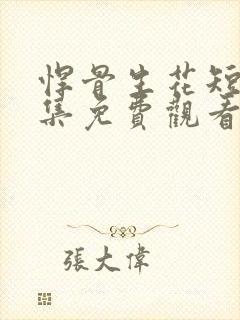 悍骨生花短
集免費觀看
張大偉